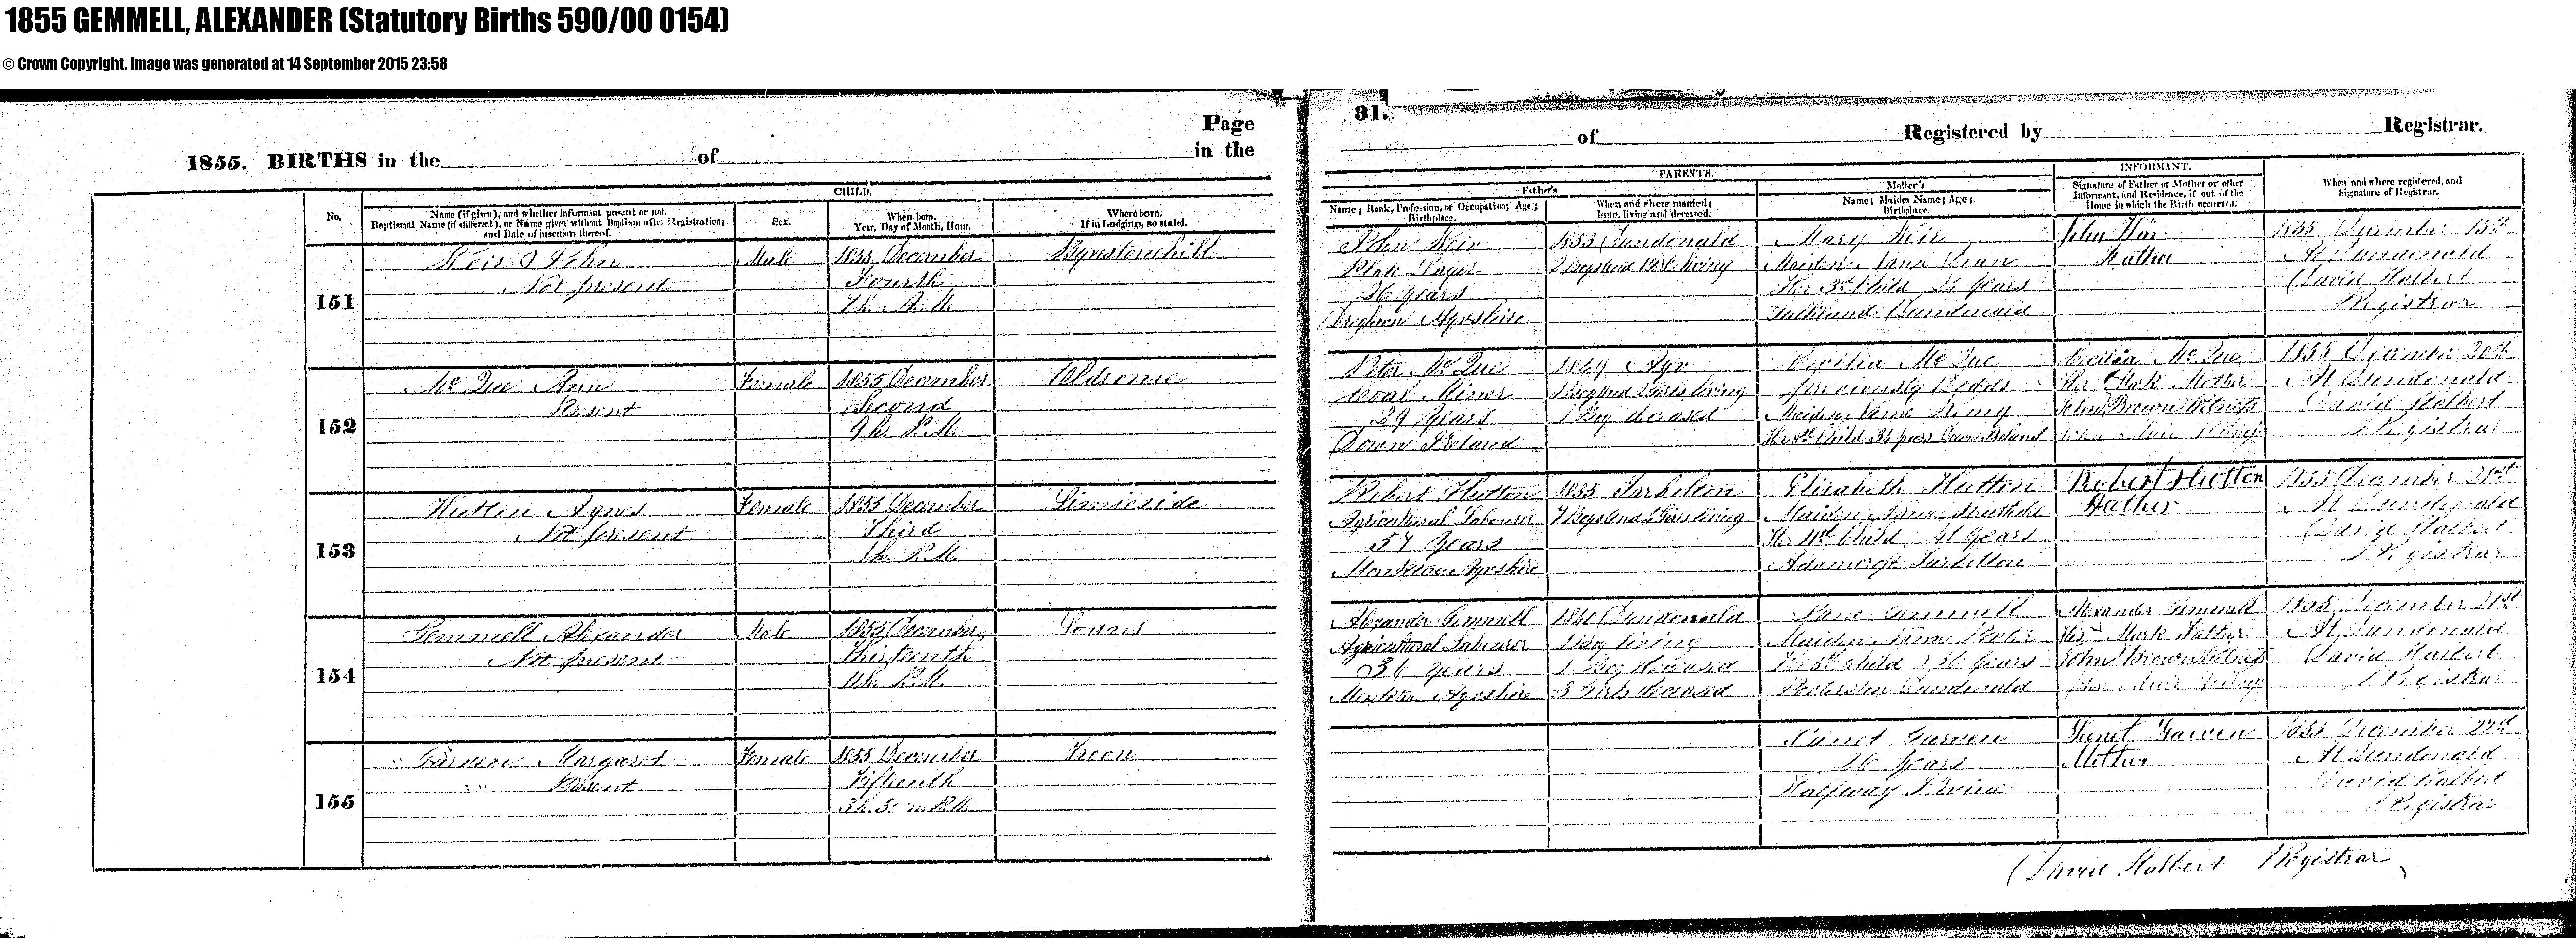 1855 GEMMELL, ALEXANDER (Statutory Births 590/00 0154)
© Crown Copyright. Image was generated at 14 September 2015 23:58
Page 31.
1855. BIRTHS in the of in the of Registered by Registrar.
CHILD.
PARENTS.
INFORMANT.
No.
Name (if given), and whether Informant present or not.
Baptismal Name (if different), or Name given without Baptism after Registration;
and Date of insertion thereof.
Sex.
When born.
Year, Day of Month, Hour.
Where born.
If in Lodgings, so stated.
Father's
Name; Rank, Profession, or Occupation; Age;
Birthplace.
When and where married;
Issue, living and deceased.
Mother's
Name; Maiden Name; Age;
Birthplace.
Signature of Father or Mother or other
Informant, and Residence, if out of the
House in which the Birth occurred.
When and where registered, and
Signature of Registrar.
151
Weir John
Not present
Male
1855 December
Fourth
7h. A.M.
John Weir
26 years
Ayrshire
1853 Dundonald
2 Boys and 1 Girl living
Mary Weir
Maiden Name
Her 3rd Child years
Dundonald
John Weir
Father
1855 December
At Dundonald
David Halbert
Registrar
152
Mc Que Ann
Present
Female
1855 December
Second
9h. P.M.
Oldrome
Peter Mc Que
Coal Miner
29 Years
Down Ireland
1849 Ayr
1 Boy and 2 Girls living
1 Boy deceased
Cecilia Mc Que
previously
Maiden Name
Her Child 34 years Down Ireland
Cecilia Mc Que
Her Mark Mother
John Brown Witness
John Muir Witness
1855 December 20th
At Dundonald
David Halbert
Registrar
153
Hutton Agnes
Not present
Female
1855 December
Third
1h. P.M.
Limieside
Robert Hutton
Agricultural Labourer
57 Years
Monkton Ayrshire
1835 Tarbolton
7 Boys and Girls living
Elizabeth Hutton
Maiden Name
Her 11th Child 41 Years
Adamcroft Tarbolton
Robert Hutton
Father
1855 December 21st
At Dundonald
David Halbert
Registrar
154
Gemmell Alexander
Not present
Male
1855 December
Thirteenth
11h. P.M.
Loans
Alexander Gemmell
Agricultural Labourer
36 Years
Monkton Ayrshire
1841 Dundonald
1 Boy living
1 Boy deceased
3 Girls deceased
Jane Gemmell
Maiden Name
Her 5th Child 36 Years
Dundonald
Alexander Gemmell
His Mark Father
John Brown Witness
John Muir Witness
1855 December 21st
At Dundonald
David Halbert
Registrar
155
Garven Margaret
Present
Female
1855 December
Fifteenth
Troon
Janet Garven
26 Years
Halfway Irvine
Janet Garven
Mother
1855 December 22d
At Dundonald
David Halbert
Registrar
David Halbert Registrar